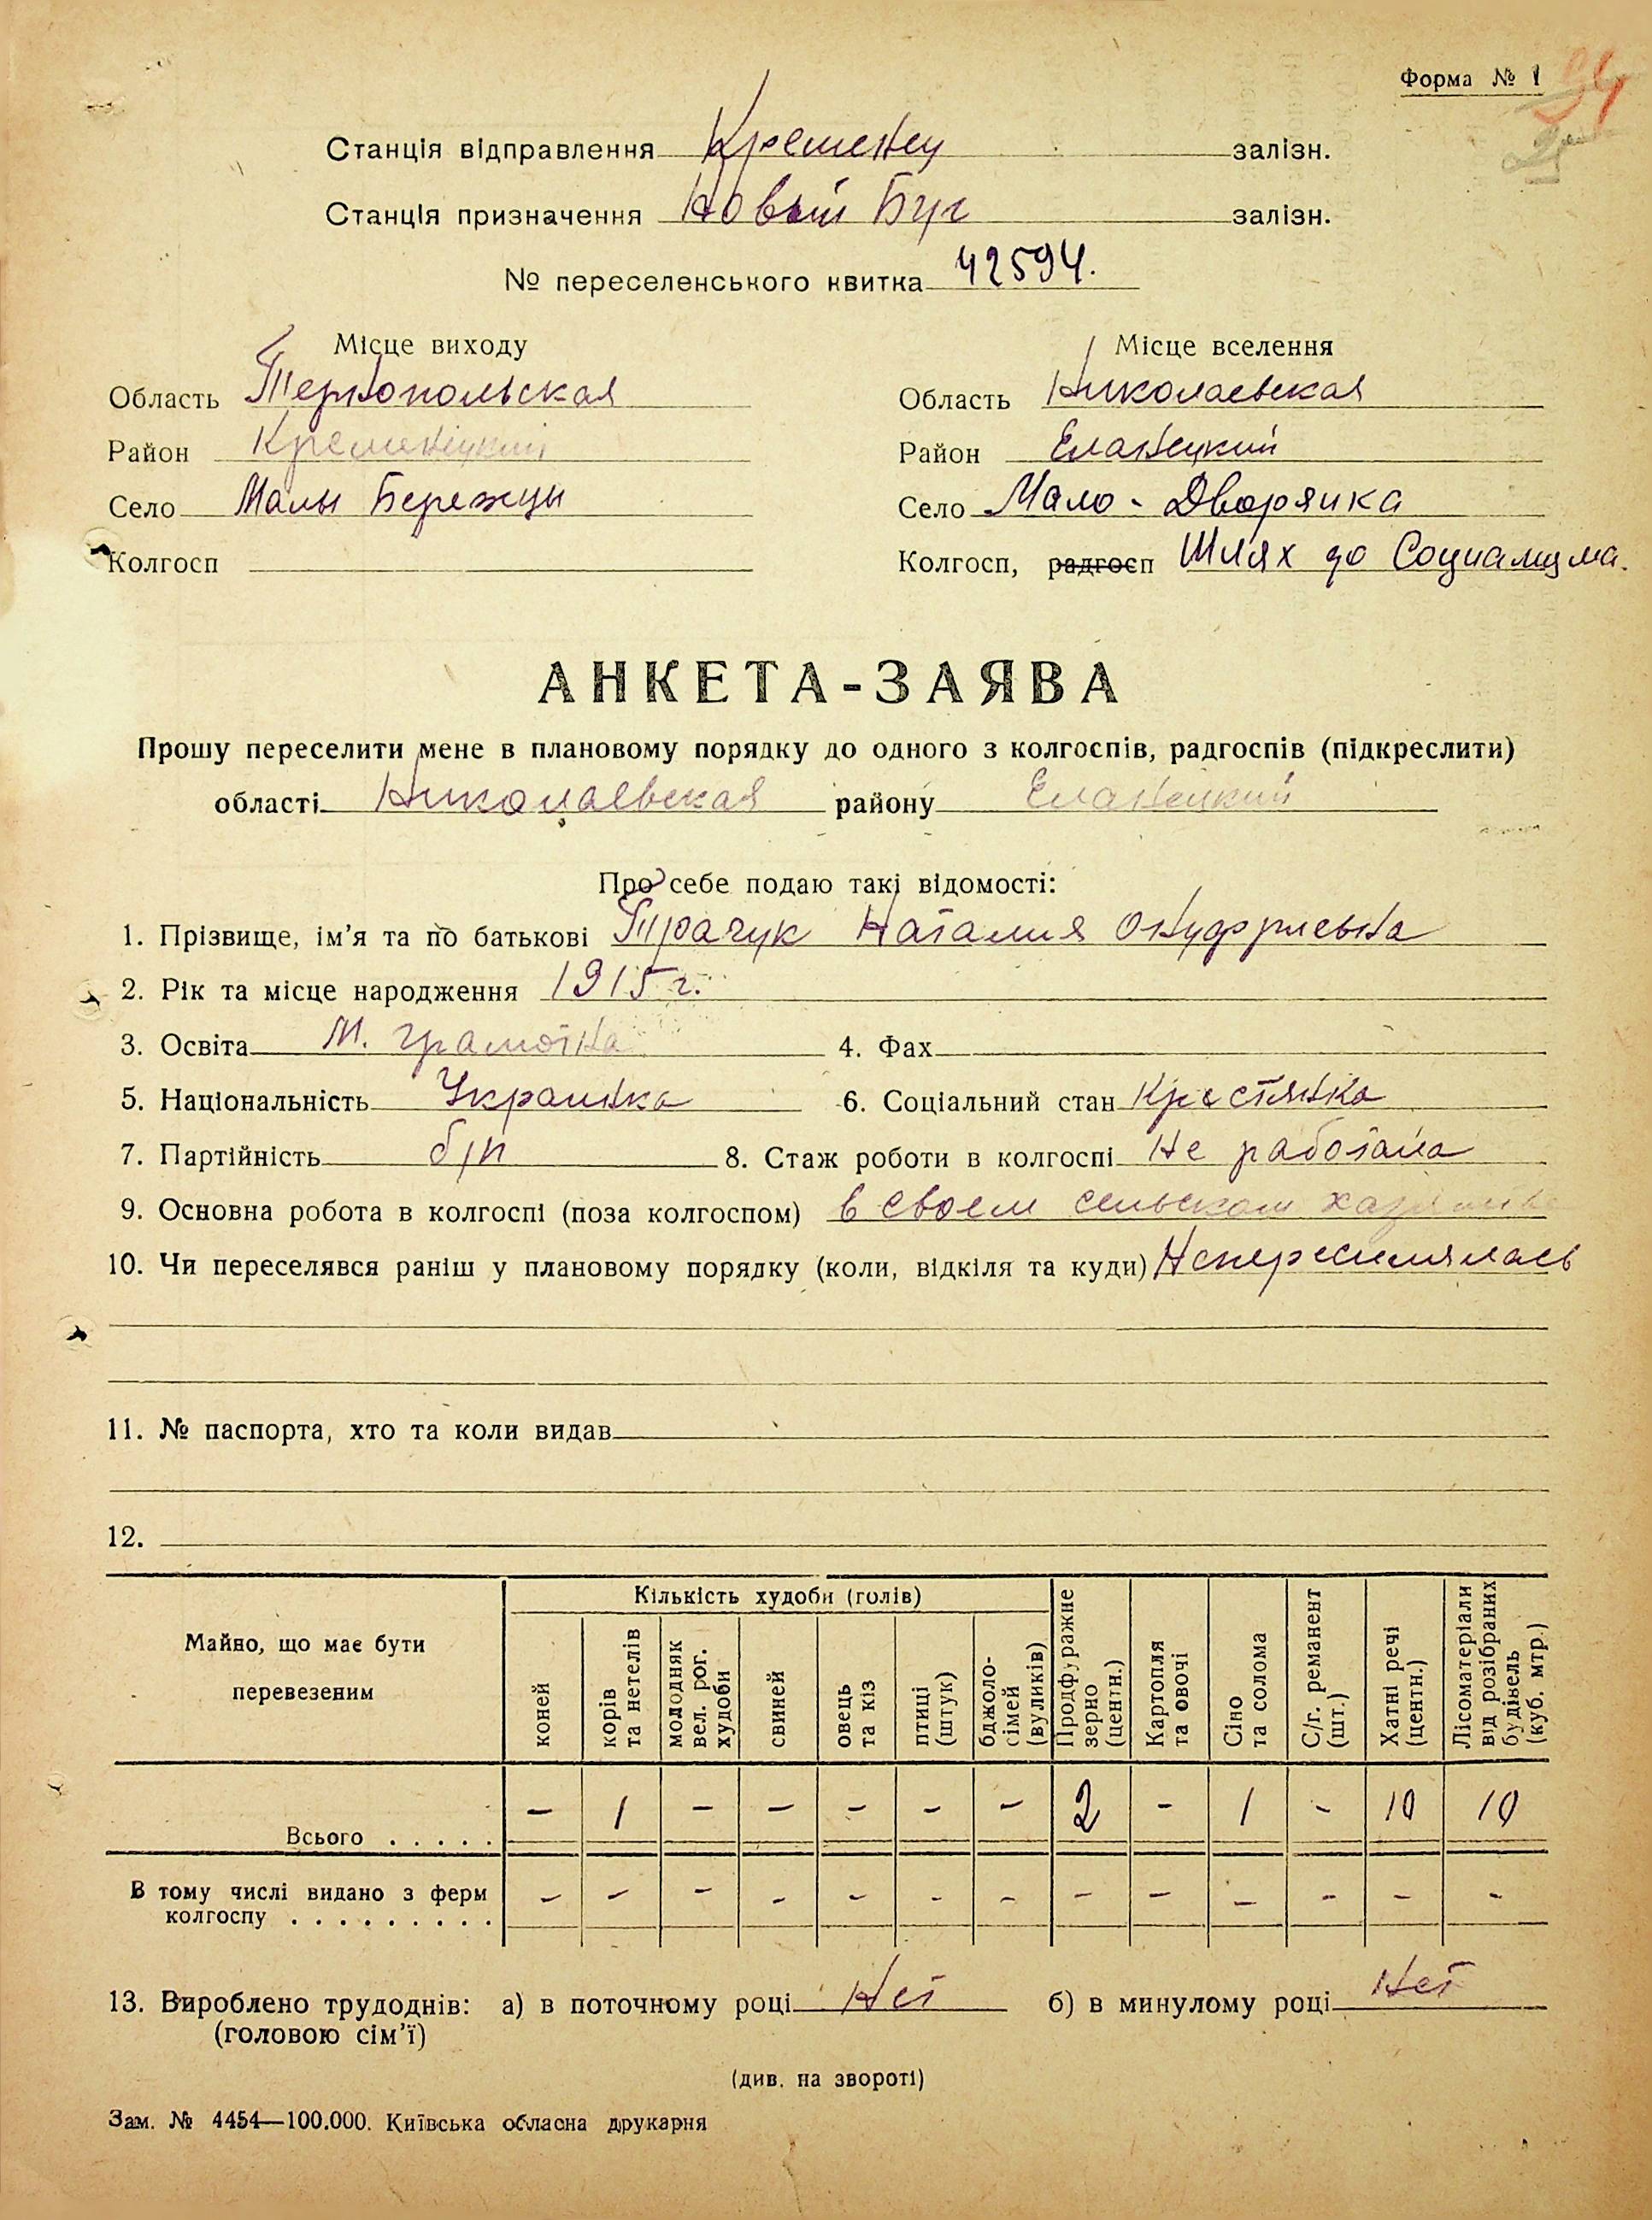 Форма № 1
94
Станція відправлення Кременец залізн.
Станція призначення Новый Буг залізн.
№ переселенського квитка 42594.
Місце виходу
Місце вселення
Область Тернопольская
Область Николаевская
Район Кременецкий
Район Еланецкий
Село Малы Бережцы
Село Мало-Дворянка
Колгосп
Колгосп, радгосп Шлях до Социализма.
АНКЕТА-ЗАЯВА
Прошу переселити мене в плановому порядку до одного з колгоспів, радгоспів (підкреслити)
області Николаевская району Еланецкий
Про себе подаю такі відомості:
1. Прізвище, ім'я та по батькові Трачук Наталия Онуфриевна
2. Рік та місце народження 1915 г.
3. Освіта М. грамотна 4. Фах
5. Національність Украинка 6. Соціальний стан Крестянка
7. Партійність б/п 8. Стаж роботи в колгоспі Не работала
9. Основна робота в колгоспі (поза колгоспом) в своем сельском
10. Чи переселявся раніш у плановому порядку (коли, відкіля та куди) Непереселялась
11. № паспорта, хто та коли видав
12.
Майно, що має бути перевезеним
Кількість худоби (голів)
коней
корів та нетелів
молодняк вел. рог. худоби
свиней
овець та кіз
птиці (штук)
бджоло-сімей (вуликів)
Продфуражне зерно (центн.)
Картопля та овочі
Сіно та солома
С/г. реманент (шт.)
Хатні речі (центн.)
Лісоматеріали від розібраних будівель (куб. мтр.)
Всього . . . . . – 1 – – – – – 2 – 1 – 10 10
В тому числі видано з ферм
колгоспу . . . . . . . . . – – – – – – – – – – – – –
13. Вироблено трудоднів: а) в поточному році Нет б) в минулому році Нет
(головою сім'ї)
(див. на звороті)
Зам. № 4454—100.000. Київська обласна друкарня